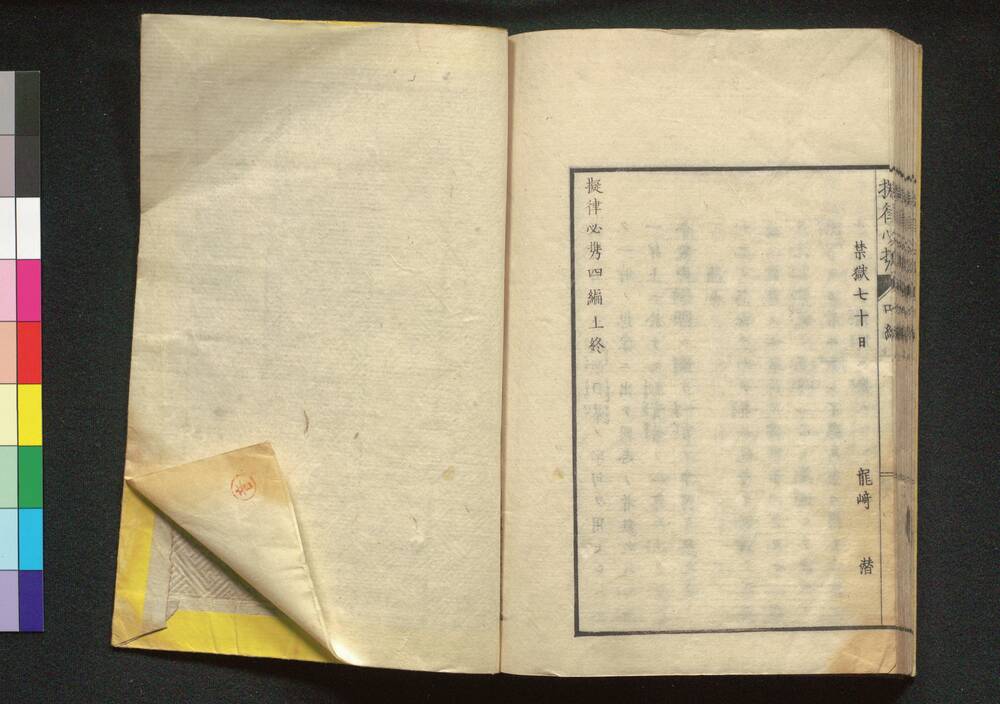 擬律必携
禁獄七十日
龍﨑　潜
擬律必携四編上終